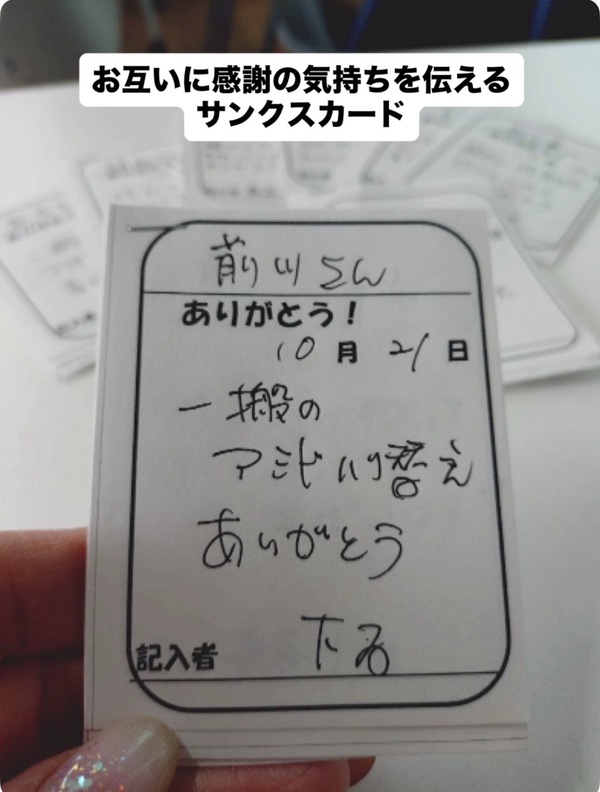 お互いに感謝の気持ちを伝える
サンクスカード
前川さん
ありがとう!
10月21日
一搬の
アミド八り替え
ありがとう
記入者 下名